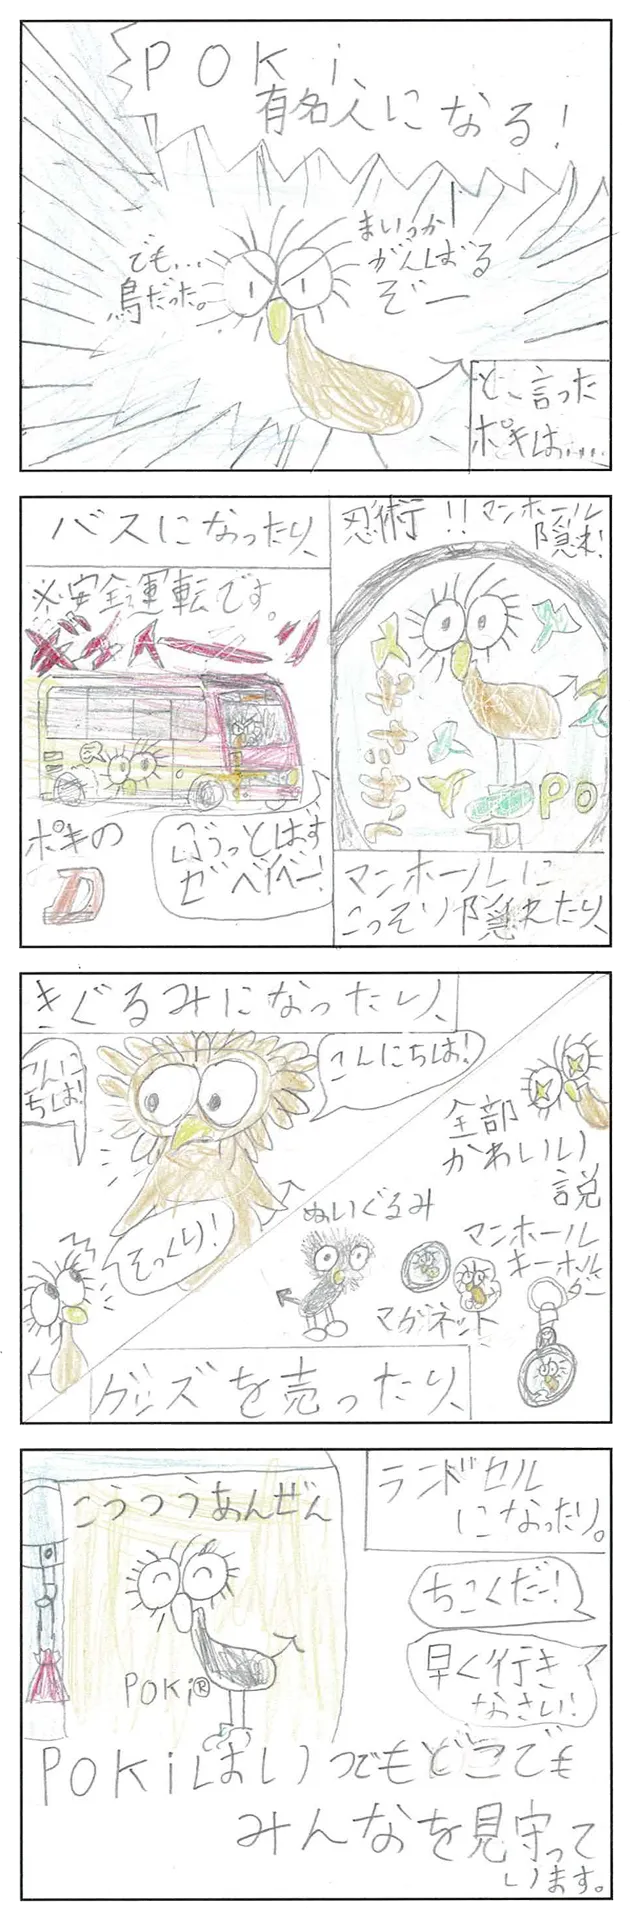 POKi、
有名人になる!
まいっか
がんばる
ぞー
でも...
鳥だった。
と、言った
ポキは....
バスになったり、
※安全運転です。
ポキの
ぶうっとばす
ゼベイベー!
忍術!!マンホール
隠れ
ささささ
PO
マンホールに
こっそり隠れたり、
きぐるみになったり、
こんにちは!
こんに
ちは!
そっくり!
全部
かわいい
説
ぬいぐるみ
マグネット
マンホール
キーホル
ダー
グッズを売ったり、
ランドセル
になったり。
こうつうあんぜん
POKi®
ちこくだー!
早く行き
なさい!
POKiはいつでもどこでも
みんなを見守って
います。